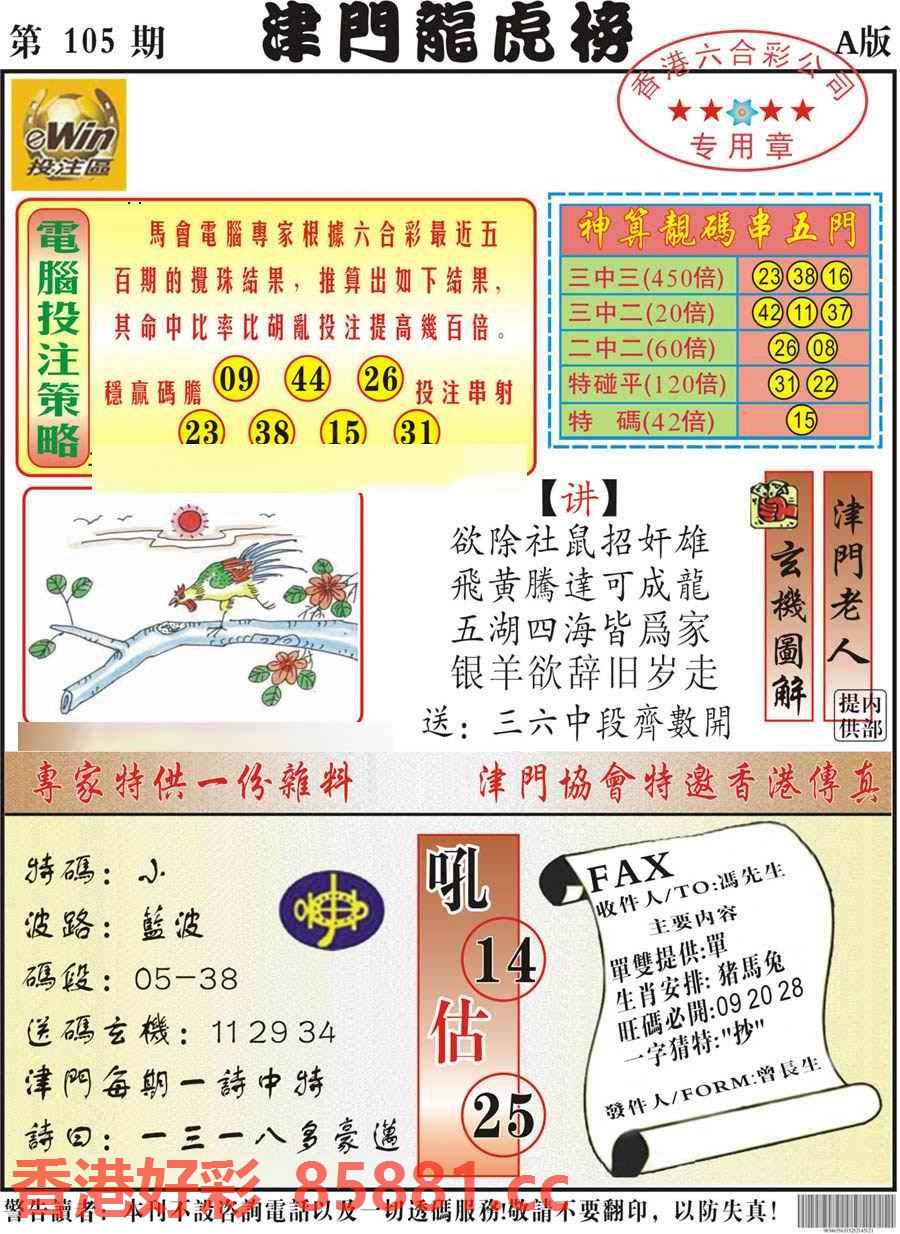 第 105 期
津門龍虎榜
A版
香港六合彩公司
专用章
eWin
投注區
電腦投注策略
馬會電腦專家根據六合彩最近五
百期的攪珠結果，推算出如下結果，
其命中比率比胡亂投注提高幾百倍。
穩贏碼膽 09 44 26 投注串射
23 38 15 31
神算靚碼串五門
三中三(450倍) 23 38 16
三中二(20倍) 42 11 37
二中二(60倍) 26 08
特碰平(120倍) 31 22
特 碼(42倍) 15
【讲】
欲除社鼠招奸雄
飛黃騰達可成龍
五湖四海皆爲家
银羊欲辞旧岁走
送：三六中段齊數開
玄機圖解
津門老人
内部
提供
專家特供一份雜料
津門協會特邀香港傳真
特碼：小
波路：藍波
碼段：05-38
送碼玄機：11 29 34
津門每期一詩中特
詩曰：一三一八多豪邁
吼
14
估
25
FAX
收件人/TO:馮先生
主要内容
單雙提供:單
生肖安排:猪馬兔
旺碼必開:09 20 28
一字猜特:"抄"
發件人/FORM:曾長生
香港好彩 85881.cc
警告讀者：本刊不設咨詢電話以及一切透碼服務!敬請不要翻印，以防失真!